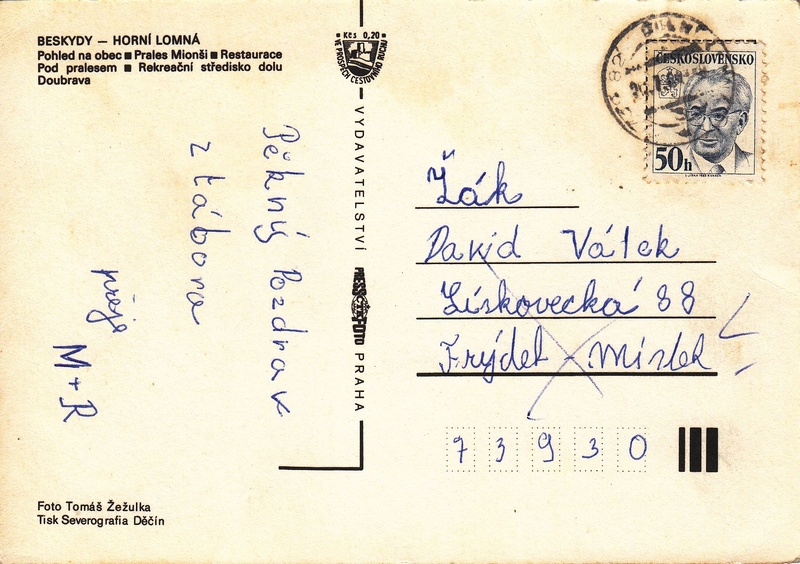 BESKYDY — HORNÍ LOMNÁ
Pohled na obec ■ Prales Mionší ■ Restaurace
Pod pralesem ■ Rekreační středisko dolu
Doubrava
Kčs 0,20
VE PROSPĚCH CESTOVNÍHO RUCHU
VYDAVATELSTVÍ PRESSFOTO PRAHA
Pěkný Pozdrav
z tábora
přeje
M+R
ČESKOSLOVENSKO
50h
Žák
David Válek
Lískovecká 88
Frýdek-Místek
73930
Foto Tomáš Žežulka
Tisk Severografia Děčín